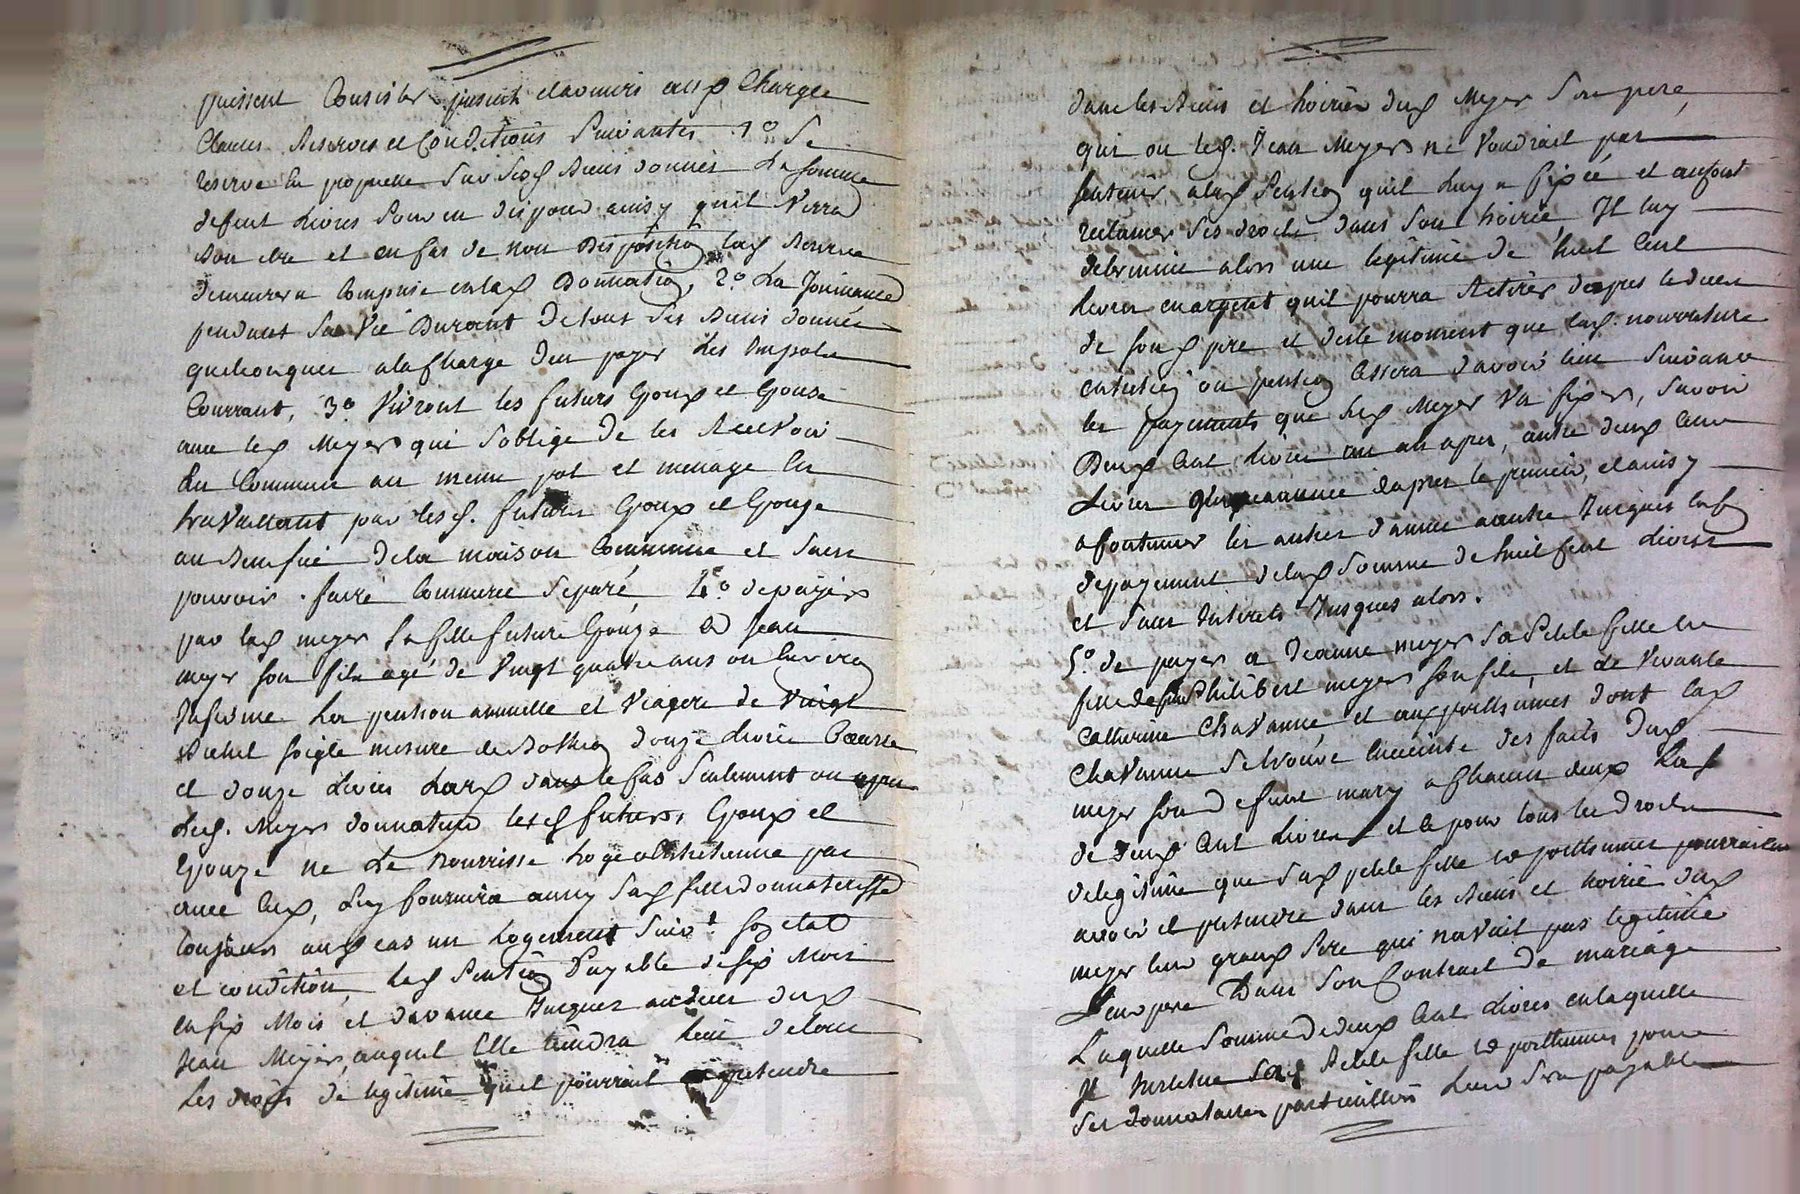 puissent Consister presents et avenirs aux Charges
Clauses Reserves et Conditions Suivantes 1º Se
reserve la proprieté Sur Sesd Biens donnés La somme
de Cent Livres Pour en disposer ainsy quil Verra
Bon etre et en Cas de non Disposition lad Reserve
demeurera Comprise en lad Donnation, 2º La Jouissance
pendant Sa Vie Durant De tous Ses Biens donnés
quelconques a la Charge den payer Les Impots
Courrant, 3º Vivront les futurs Epoux et Epouse
avec led Meyer qui S'oblige De les Recevoir
En Commun au meme pot et menage En
travaillant par lesd. futurs Epoux et Epouze
au Benefice De la maison Commune et Sans
pouvoir faire Commerce Separé, 4º de payer
par lad meyer Sa fille future Epouze a Jean
meyer son fils agé de Vingt quatre ans ou Environ
Infirme La pension annuelle et Viagere de Vingt
Bichet soigle mesure de douze Livres Beurre
et douze Livres Lard dans le Cas Seulement ou apres
Led. Meyer donnateur lesd futurs Epoux et
Epouze ne Le nourrisse Loge et Entretienne pas
avec Eux, Luy fournira aussy Sad fille donnateresse
toujours aud cas un Logement Suivt. son etat
et condition, Lad Pention Payable de six Mois
en six Mois et d'avance Jusques au deces dud
Jean Meyer, auquel Elle tiendra Lieu de tous
Les droits de legitime quil pourrait pretendre
dans les Biens et hoirie dud Meyer Son pere,
qui ou led. Jean Meyer ne Voudrait pas
sentenir a lad Pention quil Luy a fixée et
reclamer Ses droits dans Son hoirie, Il luy
determine alors une legitime de huit Cent
Livres en argent quil pourra Retirer dapres le deces
de Sond pere et des le moment que lad. nourriture
entretien ou pention Cessera d'avoir lieu Suivant
les payements que led Meyer Va fixer, Savoir
Deux Cent Livres un an apres, autre deux Cent
Livres une année dapres le premier, et ainsy
a Continuer les autres d'année a autre Jusques
de payement de lad Somme de huit Cent Livres
et Sans Interets Jusques alors.
5º de payer a Jeanne meyer Sa Petite fille
fille de feu Philibert meyer son fils, et de Vivante
Catherine Chavanne, et aux posthumes dont lad
Chavanne Se trouve Enceinte des faits dud
meyer Son Defunt mary a Chacun deux Lad
de Deux Cent Livres et Ce pour tous les Droits
de legitime que Sad petite fille et posthumes pourraient
avoir et pretendre dans les Biens et hoirie dud
meyer leur grand Pere qui n'avait pas legitimé
Leur pere Dans Son Contract de mariage
Laquelle Somme de deux Cent Livres en laquelle
Il Institue Sad Petite fille et posthumes pour
Ses donnataires particulliers Leur Sera payable